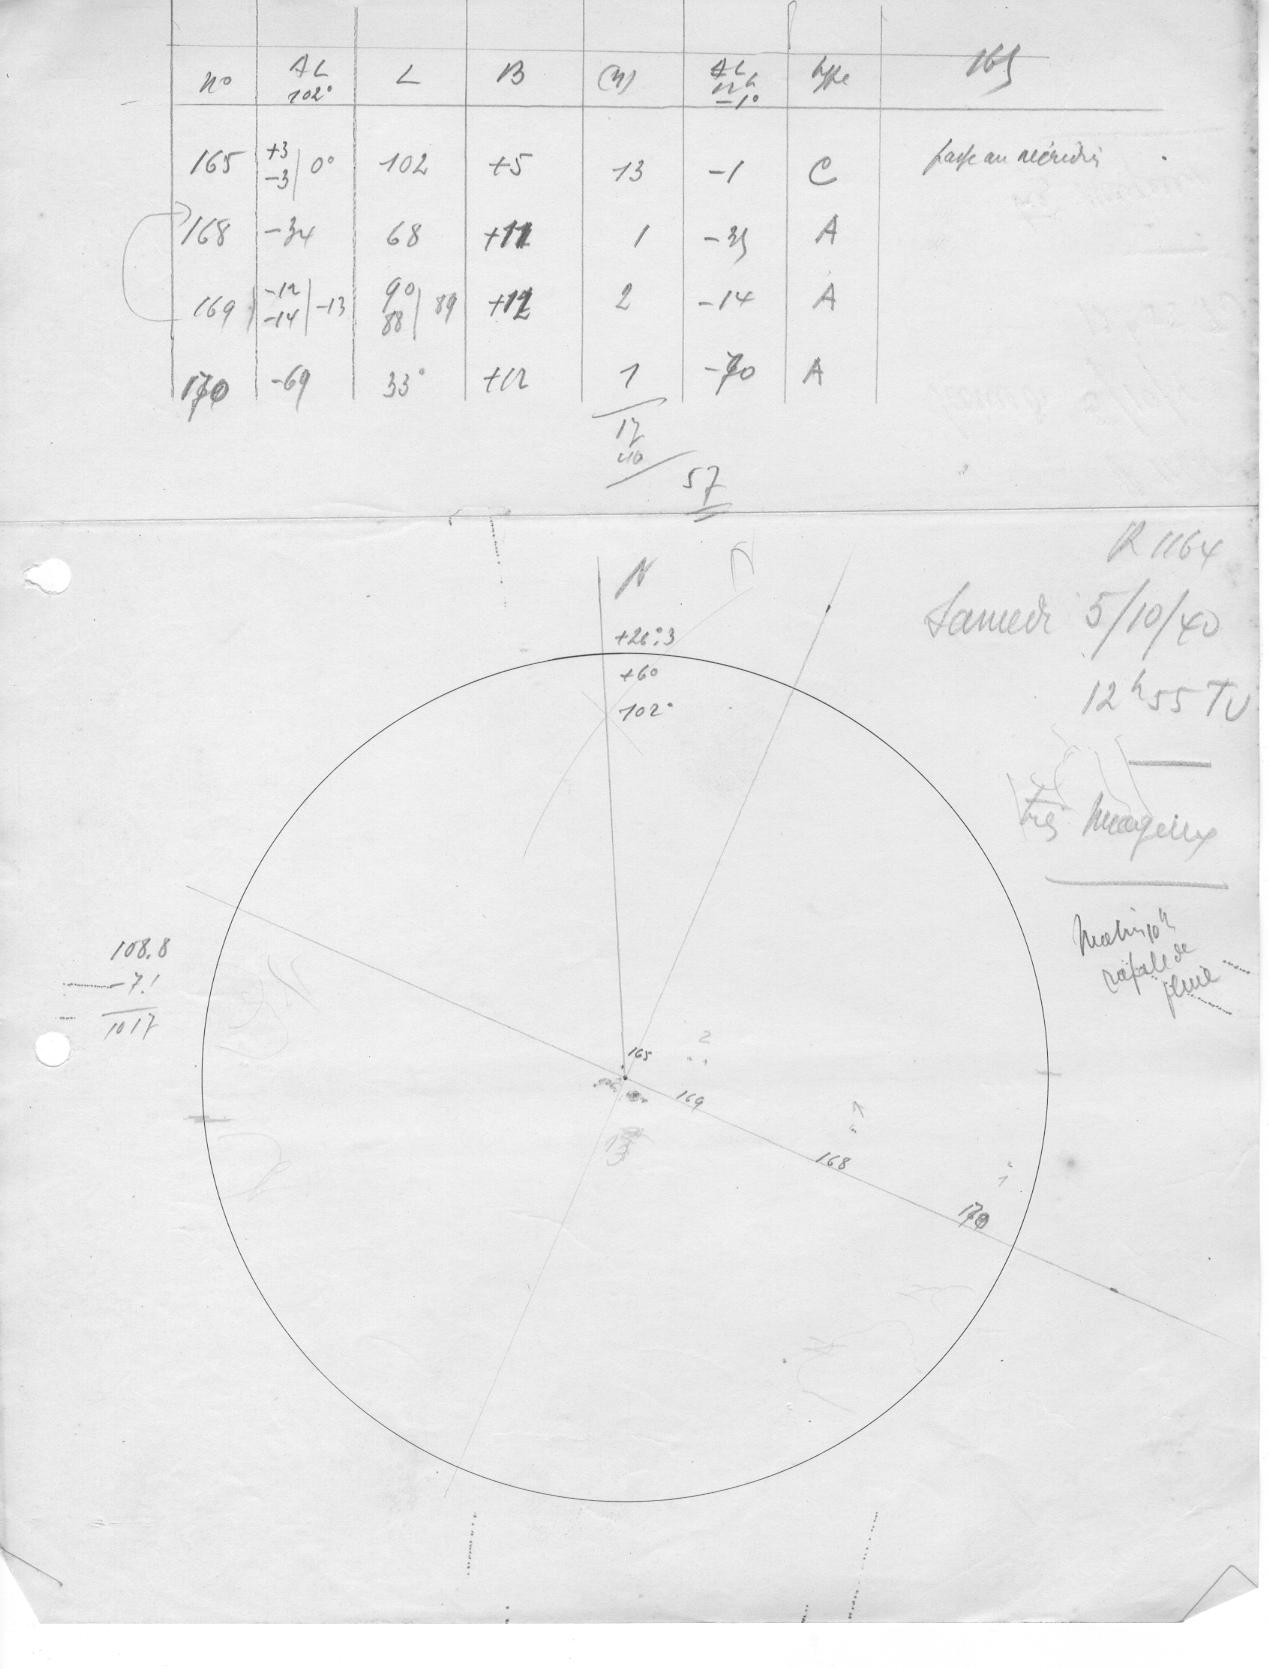 n° ΔL 102° L B (n) ΔL 12h -1° type 165
165 +3 -3 0° 102 +5 13 -1 C passe au méridien
168 -34 68 +11 1 -35 A
169 -12 -14 -13 90 88 89 +12 2 -14 A
170 -69 33° +12 1 -70 A
17
40
57
R 1164
Samedi 5/10/40
12h55 TU
N
+26°.3
+6°
102°
Très nuageux
Matin 10h
rafale de
pluie
108.8
-7.1
101.7
165
2
169
1
168
1
170
13